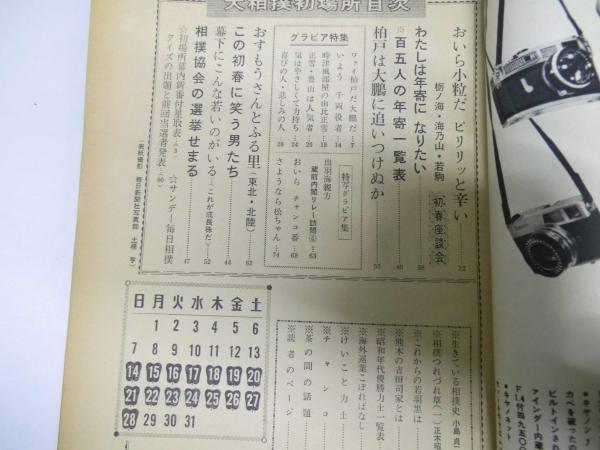 大相撲初場所目次
おいら小粒だ ピリリッと辛い
栃ノ海・海乃山・若駒 初春座談会 22
わたしは年寄に なりたい 58
※百五人の年寄一覧表 46
柏戸は大鵬に追いつけぬか 50
グラビア特集
ワァイ柏戸だ大鵬だ 3
いよう 千両役者 14
時津風部屋の由比正雪 18
正雪・豊山は人気者 20
気はやさしくて力持ち 24
喜びの人・悲しみの人 28
特写グラビア集
出羽海親方
蔵前内閣リレー訪問④ 63
おいら チャンコ番 68
さようなら松ちゃん 74
おすもうさんとふる里(東北・北陸) 62
この初春に笑う男たち 44
幕下にこんな若いのがいる(これが成長株だ) 52
相撲協会の選挙せまる 47
☆初場所幕内新番付星取表
☆サンデー毎日相撲クイズの出題と前回当選者発表
(表紙撮影 毎日新聞社写真部
日 月 火 水 木 金 土
1 2 3 4 5 6
7 8 9 10 11 12 13
14 15 16 17 18 19 20
21 22 23 24 25 26 27
28 29 30 31
※生きている相撲史 小島貞二
※相撲つれづれ草(一) 正木昭
※これからの若羽黒は
※熊本の吉田司家とは
※昭和年代優勝力士一覧表
※海外巡業こぼればなし
※けいこと力士
※チャンコ
※茶の間の話題
※読者のページ
F1.4付49,500
アインダー内蔵
ビルトインされ
カベを破ったの
●キヤノン7
●キヤノネット